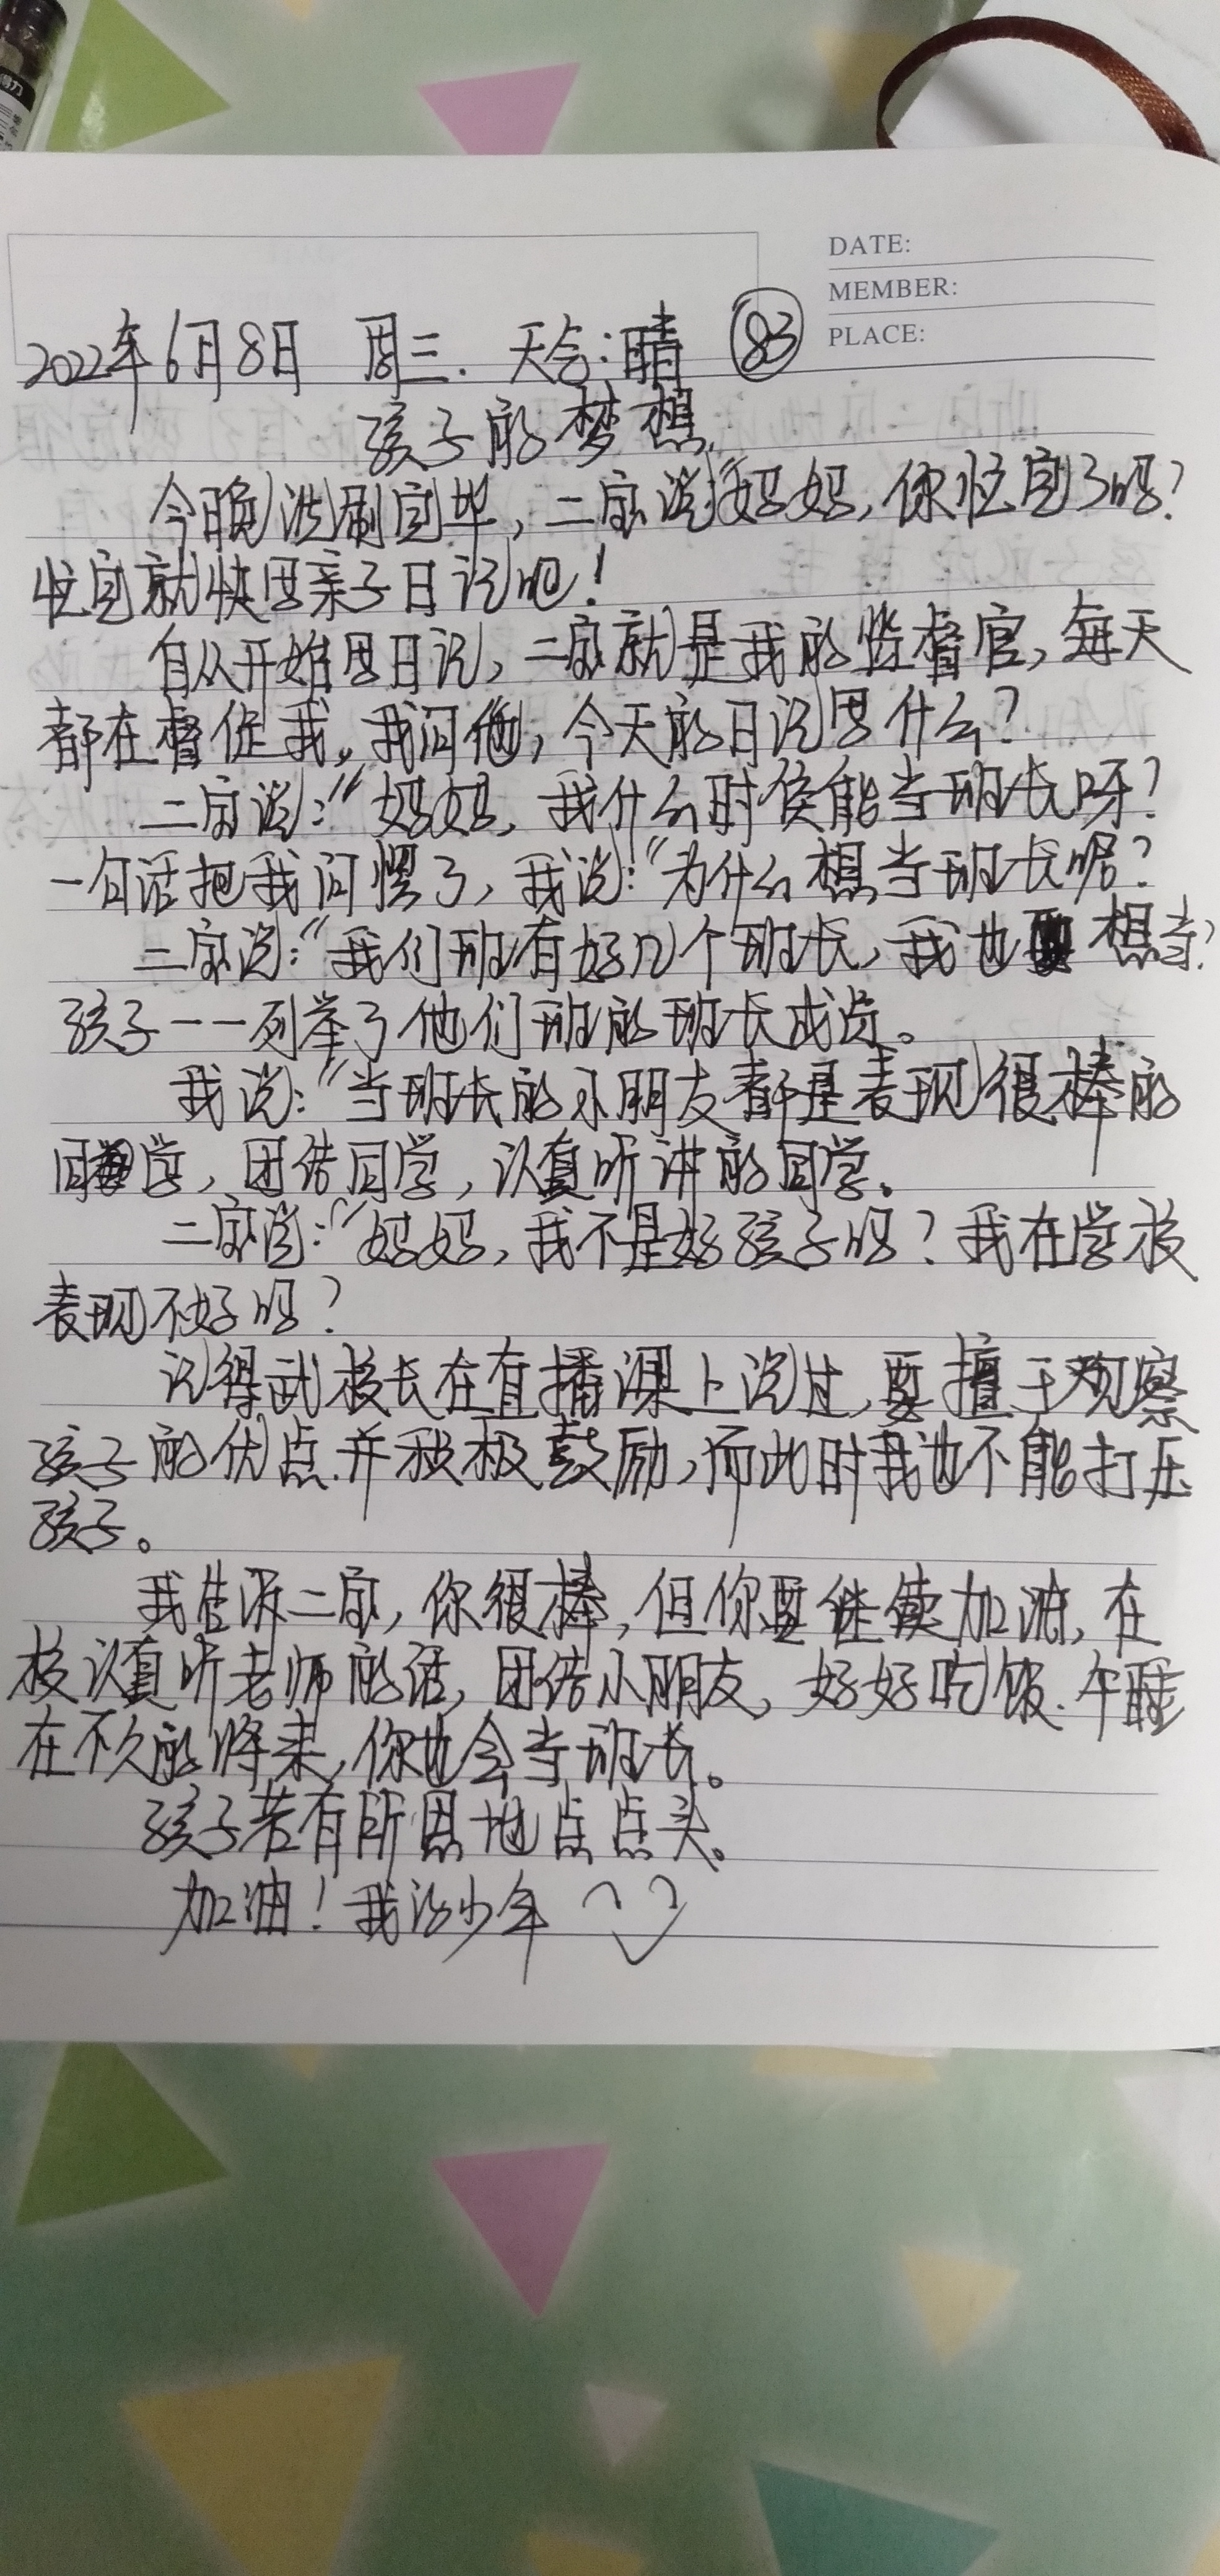 得力
DATE:
MEMBER:
PLACE:
2022年6月8日 周三. 天气:晴 83
孩子的梦想
今晚洗刷完毕,二宝说“妈妈,你忙完了吗?
忙完就快写亲子日记吧!
自从开始写日记,二宝就是我的监督官,每天
都在督促我。我问他,今天的日记写什么?
二宝说:“妈妈,我什么时侯能当班长呀?
一句话把我问愣了,我说:“为什么想当班长呢?
二宝说:“我们班有好几个班长,我也想当?
孩子一一列举了他们班的班长成员。
我说:“当班长的小朋友都是表现很棒的
同学,团结同学,认真听讲的同学。
二宝说:“妈妈,我不是好孩子吗?我在学校
表现不好吗?
记得武校长在直播课上说过,要擅于观察
孩子的优点.并积极鼓励,而此时我也不能打压
孩子。
我告诉二宝,你很棒,但你要继续加油,在
校认真听老师的话,团结小朋友,好好吃饭.午睡
在不久的将来,你也会当班长。
孩子若有所思地点点头。
加油!我的少年